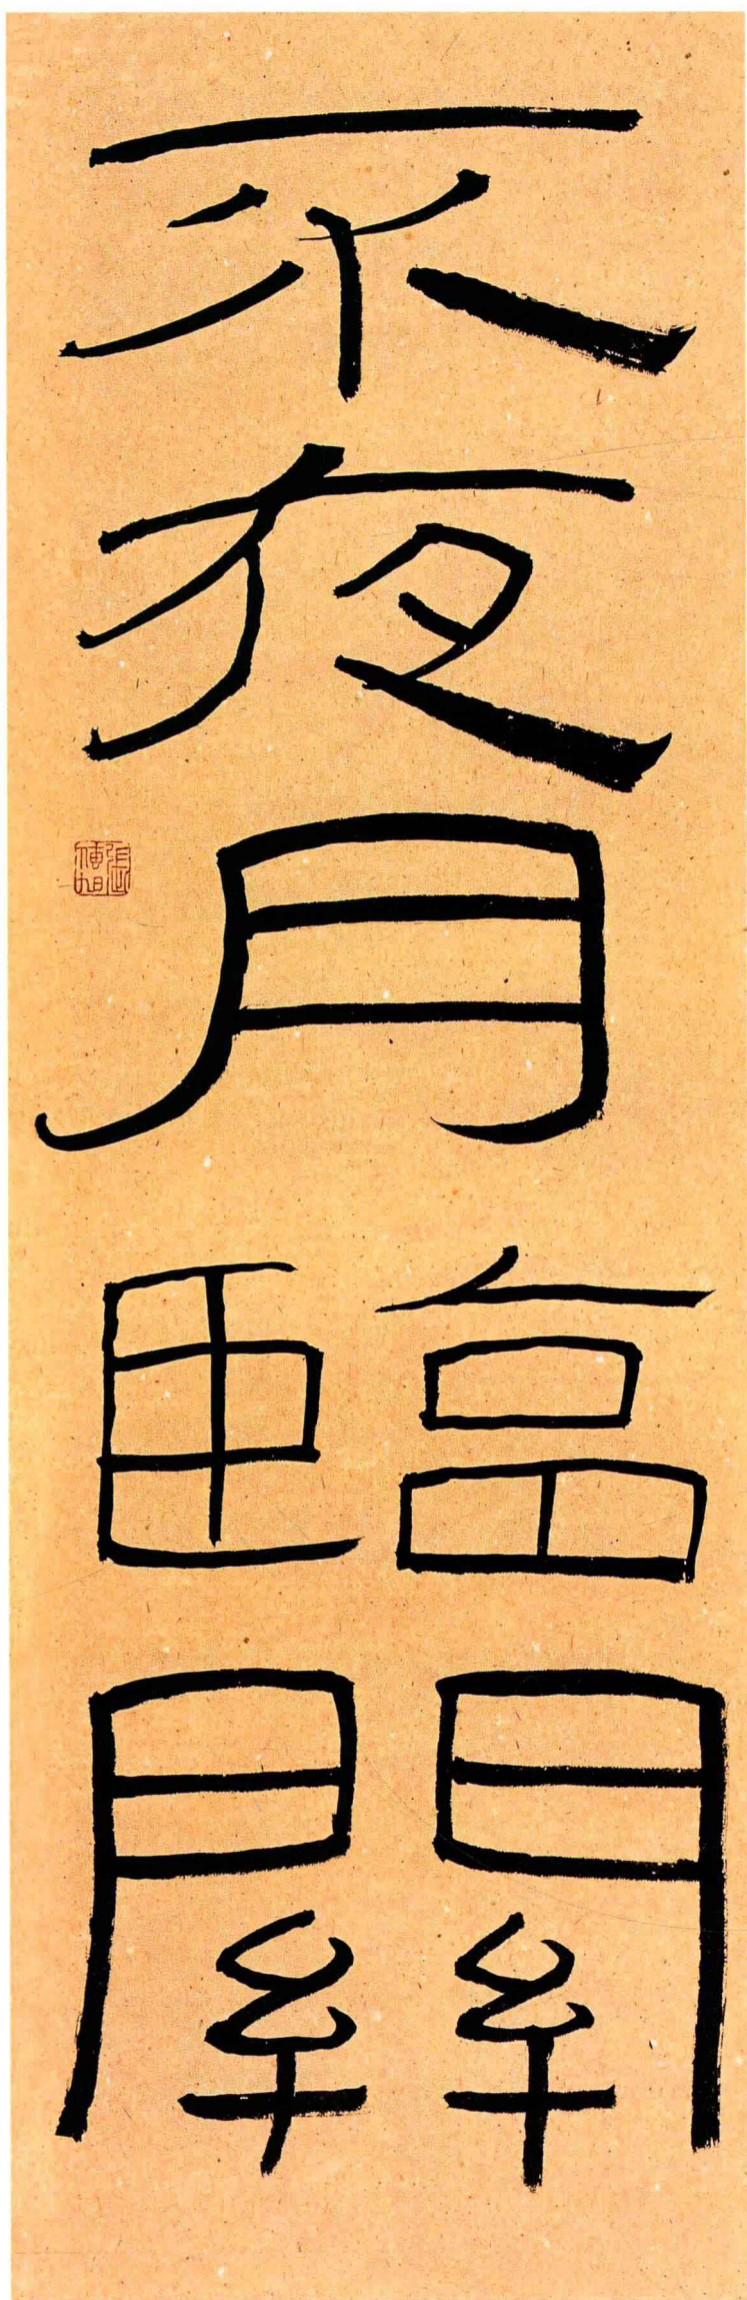 不夜月臨關